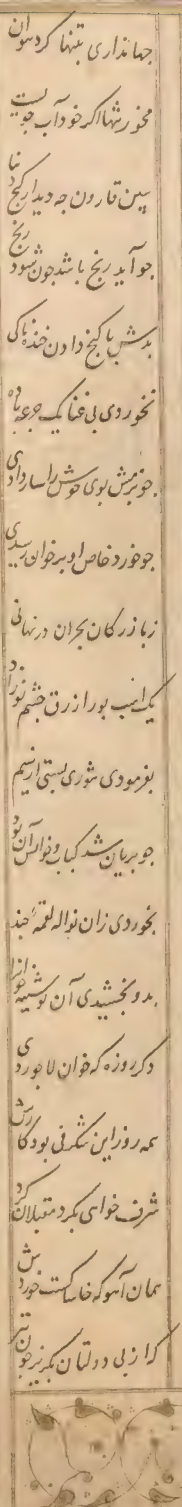 جهانداری بتنها کرد نتوان
مخور تنها اگر خود آب جویست
ببین قارون چه دید از گنج دنیا
چو آید رنج باشد چون شود رنج
بدش با گنج دادن خنده ناکی
نخوردی بی غنا یک جرعه باده
چو بزمش بوی خوش را ساز دادی
چو خورد خاص او بر خوان رسیدی
ز بازرگان بحران در نهانی
یک اسب بور ازرق چشم نوزاد
بفرمودی تنوری بستن از سیم
چو بریان شد کباب و خوانش آن بود
بخوردی زان نواله لقمه چند
بدو بخشیدی آن
دگر روزه که خوان لاجوردی
همه روز این شگرفی بود کارش
شرف خواهی بگرد مقبلان گرد
همان آهو که خاشاکست خوردش
گراز بی دولتان بگریز چون تیر